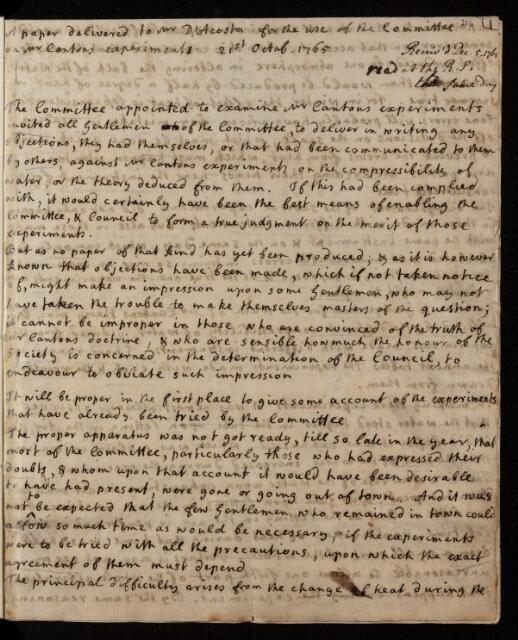 A paper delivered to Mr DaCosta for the use of the Committee
on Mr Cantons experiments 21st Octob. 1765
1
Receiv'd Dec. 5. 1765
read at the R. S.
the same day
The Committee appointed to examine Mr Cantons experiments
invited all Gentlemen of the Committee, to deliver in writing any
objections, they had themselves, or that had been communicated to them
by others against Mr Cantons experiments on the compressibility of
water, or the theory deduced from them. If this had been complied
with, it would certainly have been the best means of enabling the
Committee, & Council to form a true judgment on the merit of those
experiments.
But as no paper of that kind has yet been produced; & as it is however
known that objections have been made, which if not taken notice
of, might make an impression upon some Gentlemen, who may not
have taken the trouble to make themselves masters of the question;
it cannot be improper in those who are convinced of the truth of
Mr Cantons doctrine, & who are sensible how much the honour of the
Society is concerned in the determination of the Council, to
endeavour to obviate such impression
It will be proper in the first place to give some account of the experiments
that have already been tried by the Committee
The proper apparatus was not got ready, till so late in the year, that
most of the Committee, particularly those who had expressed their
doubts, & whom upon that account it would have been desirable
to have had present, were gone or going out of town. And it was
not to be expected that the few Gentlemen who remained in town could
allow so much time as would be necessary, if the experiments
were to be tried with all the precautions, upon which the exact
agreement of them must depend
The principal difficulty arises from the change of heat, during the